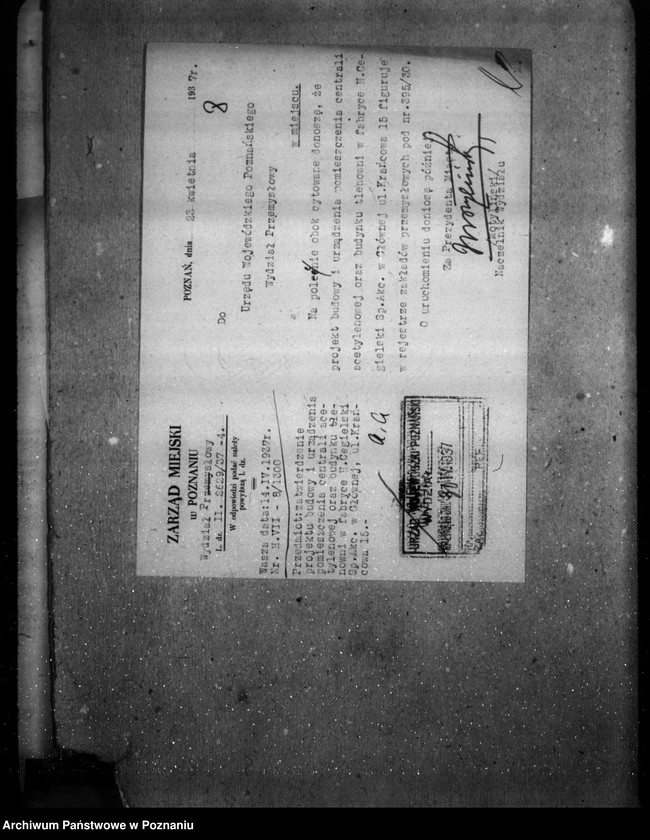 ZARZĄD MIEJSKI
w POZNANIU
Wydział Przemysłowy
L. dz. II. 2629/37 -4.
W odpowiedzi podać należy
powyższą l. dz.
Wasza data:14.IV.1937r.
Nr. H.VII - 8/1300
Przedmiot:zatwierdzenie
projektu budowy i urządzenia
pomieszczenia centrali ace-
tylenowej oraz budynku tle-
nowni w fabryce H.Cegielski
Sp.Akc. w Głównej, ul.Krań-
cowa 15.-
a.a
URZĄD WOJEWÓDZKI POZNAŃSKI
POZNAŃ, dnia 23 kwietnia 1937r.
8
Do
Urzędu Wojewódzkiego Poznańskiego
Wydział Przemysłowy
w miejscu.
Na polecenie obok cytowane donoszę, że
projekt budowy i urządzenia pomieszczenia centrali
acetylenowej oraz budynku tlenowni w fabryce H.Ce-
gielski Sp.Akc. w Głównej ul.Krańcowa 15 figuruje
w rejestrze zakładów przemysłowych pod nr.395/30.
O uruchomieniu doniosę później
Za Prezydenta
Naczelnik Wydziału
Archiwum Państwowe w Poznaniu